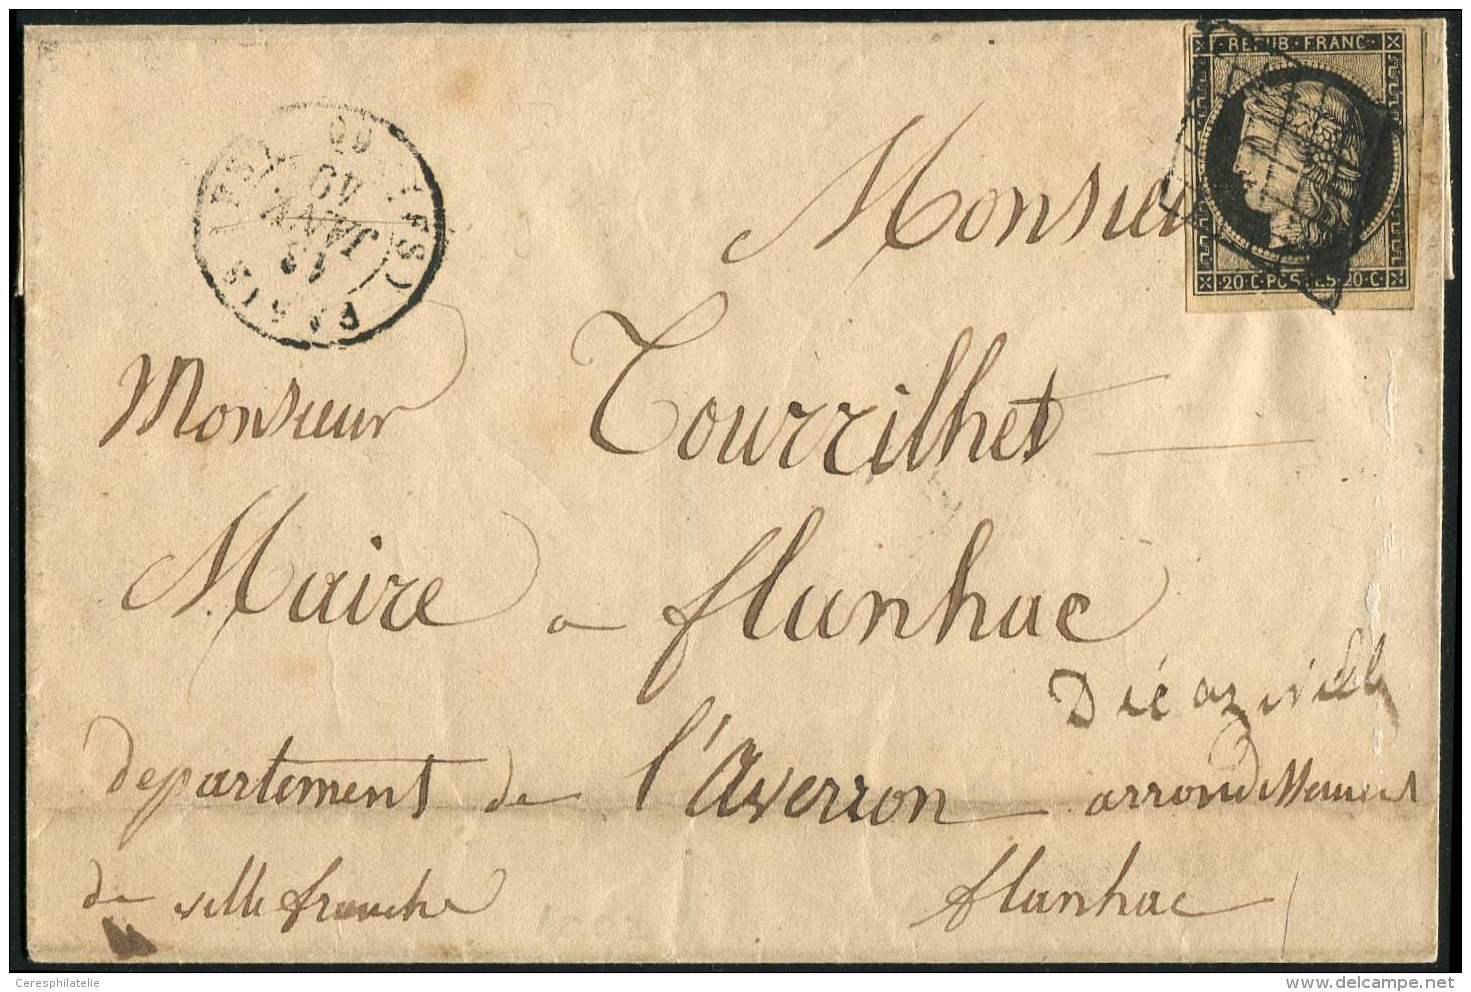 REPUB·FRANC·
20·C·POSTES·20·C·
PARIS
13
JANV.
49
60
Monsieur
Monsieur Tourrilhet
Maire a flanhac
Décazville
departement de l'Averron arrondissement
de villefranche flanhac
Ceresphilatelie
delcampe.net